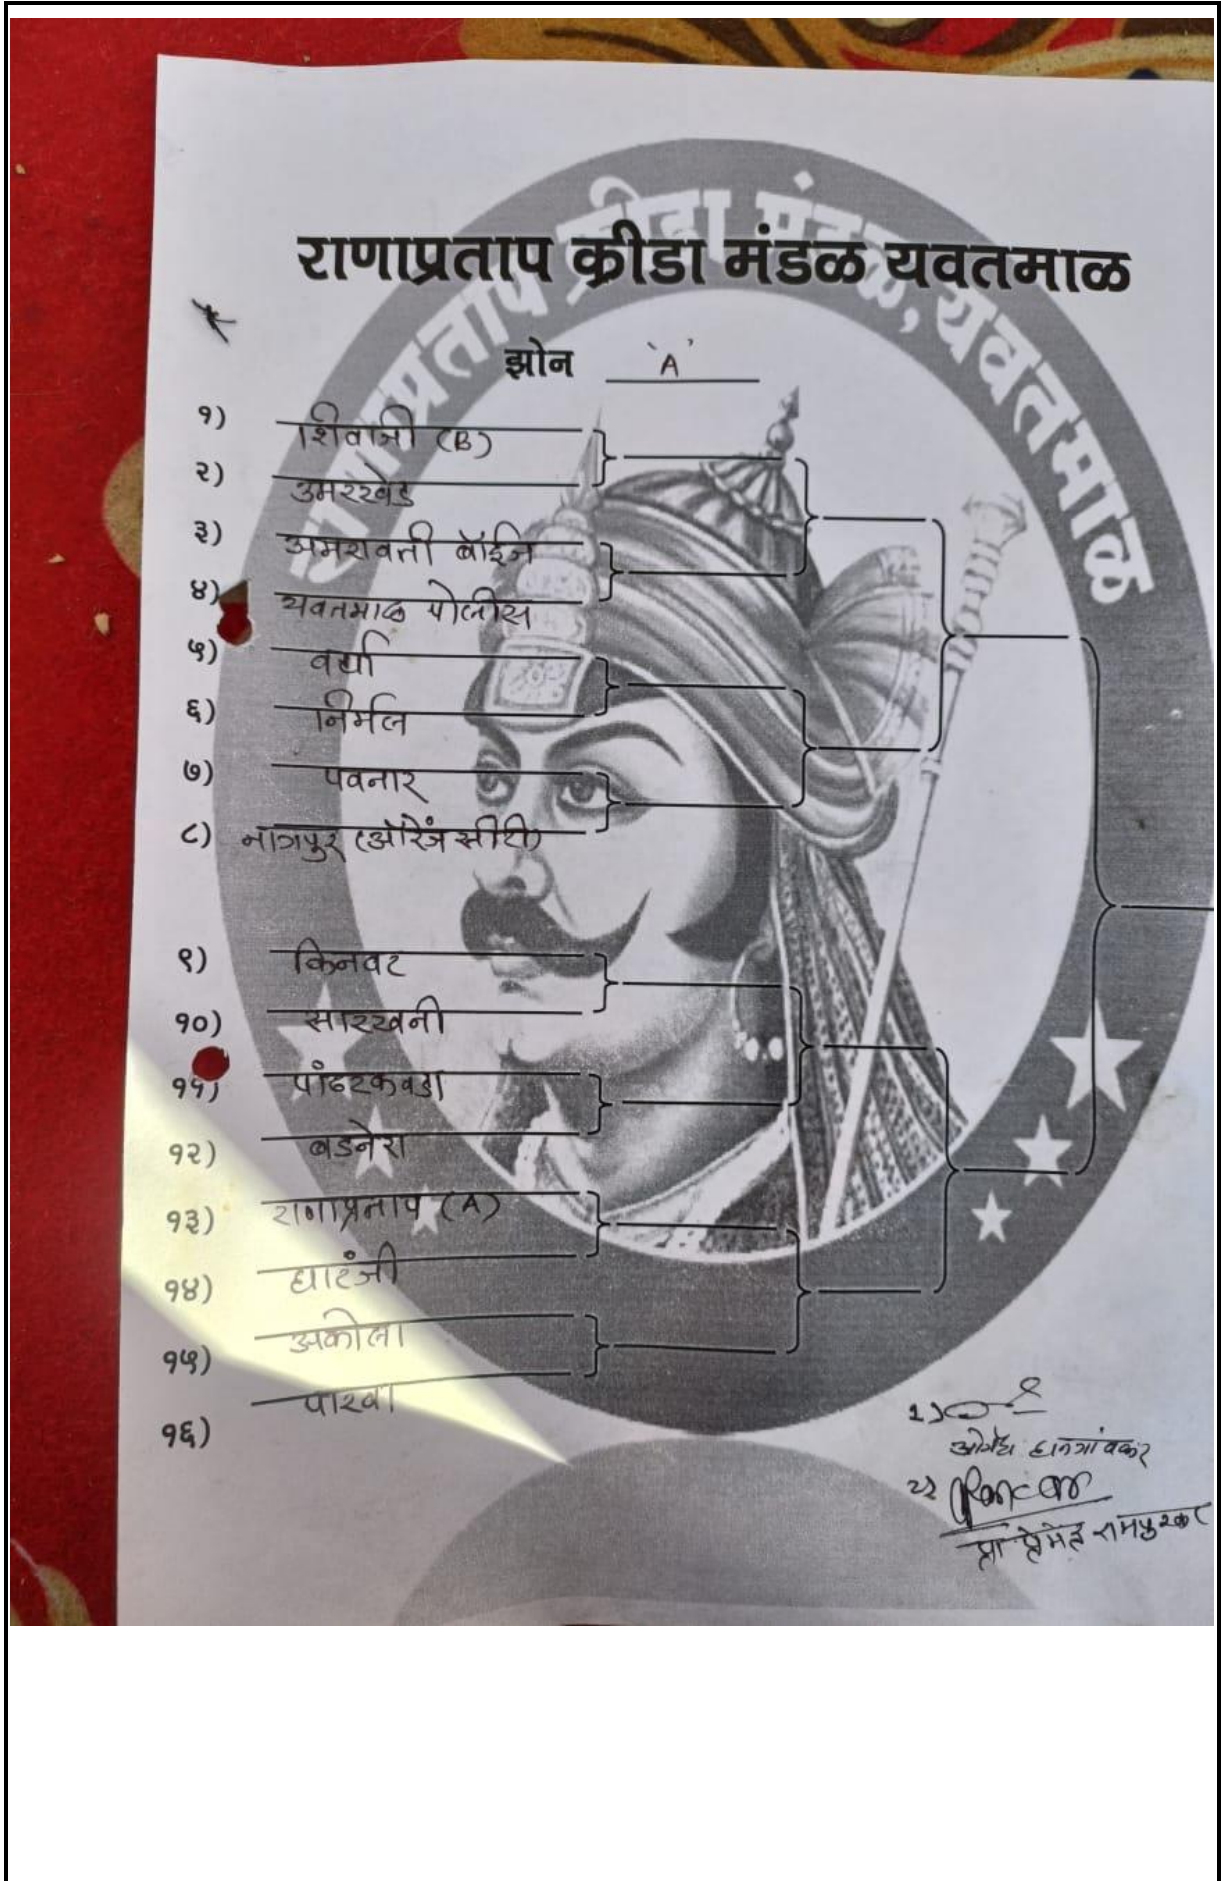 राणाप्रताप क्रीडा मंडळ, यवतमाळ
राणाप्रताप क्रीडा मंडळ यवतमाळ
झोन 'A'
१) शिवाजी (B)
२) उमरखेड
३) अमरावती बॉईज
४) यवतमाळ पोलीस
५) वर्धा
६) निर्मल
७) पवनार
८) नागपुर (ऑरेंज सीटी)
९) किनवट
१०) सारखनी
११) पांढरकवडा
१२) बडनेरा
१३) राणाप्रताप (A)
१४) घाटंजी
१५) अकोला
१६) पारवा
१)
२)
प्रा